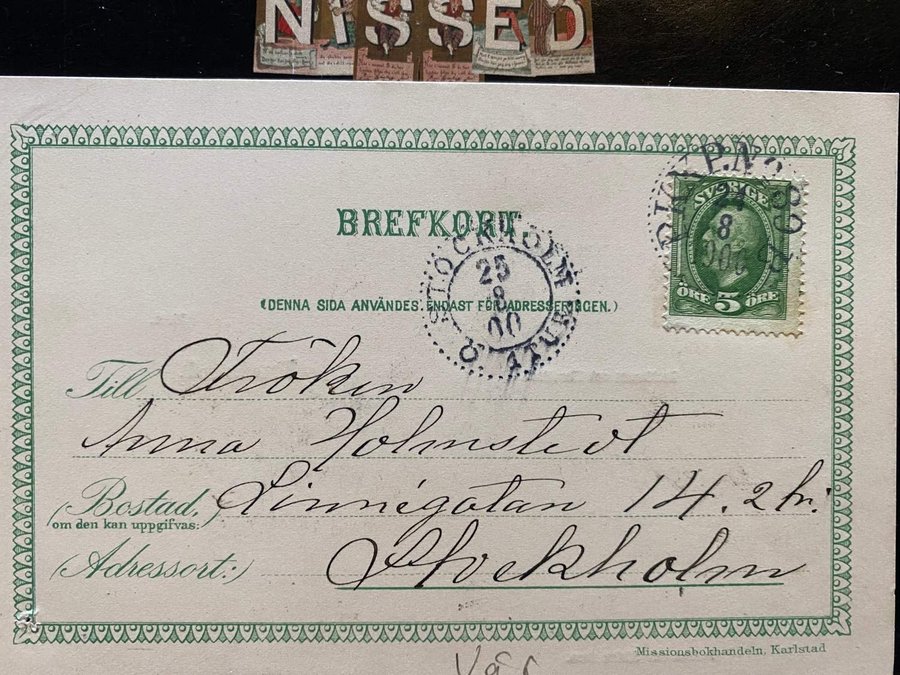 NISSED
BREFKORT
(DENNA SIDA ANVÄNDES ENDAST FÖR ADRESSERINGEN.)
STOCKHOLM
25
8
00
Ö. ATUR
PKXP.Nº 89
24
8
00
SVERIGE
ÖRE 5 ÖRE
Till Fröken
Anna Holmstedt
(Bostad, Linnégatan 14. 2 tr.
om den kan uppgifvas:
(Adressort:) Stockholm
Missionsbokhandeln, Karlstad